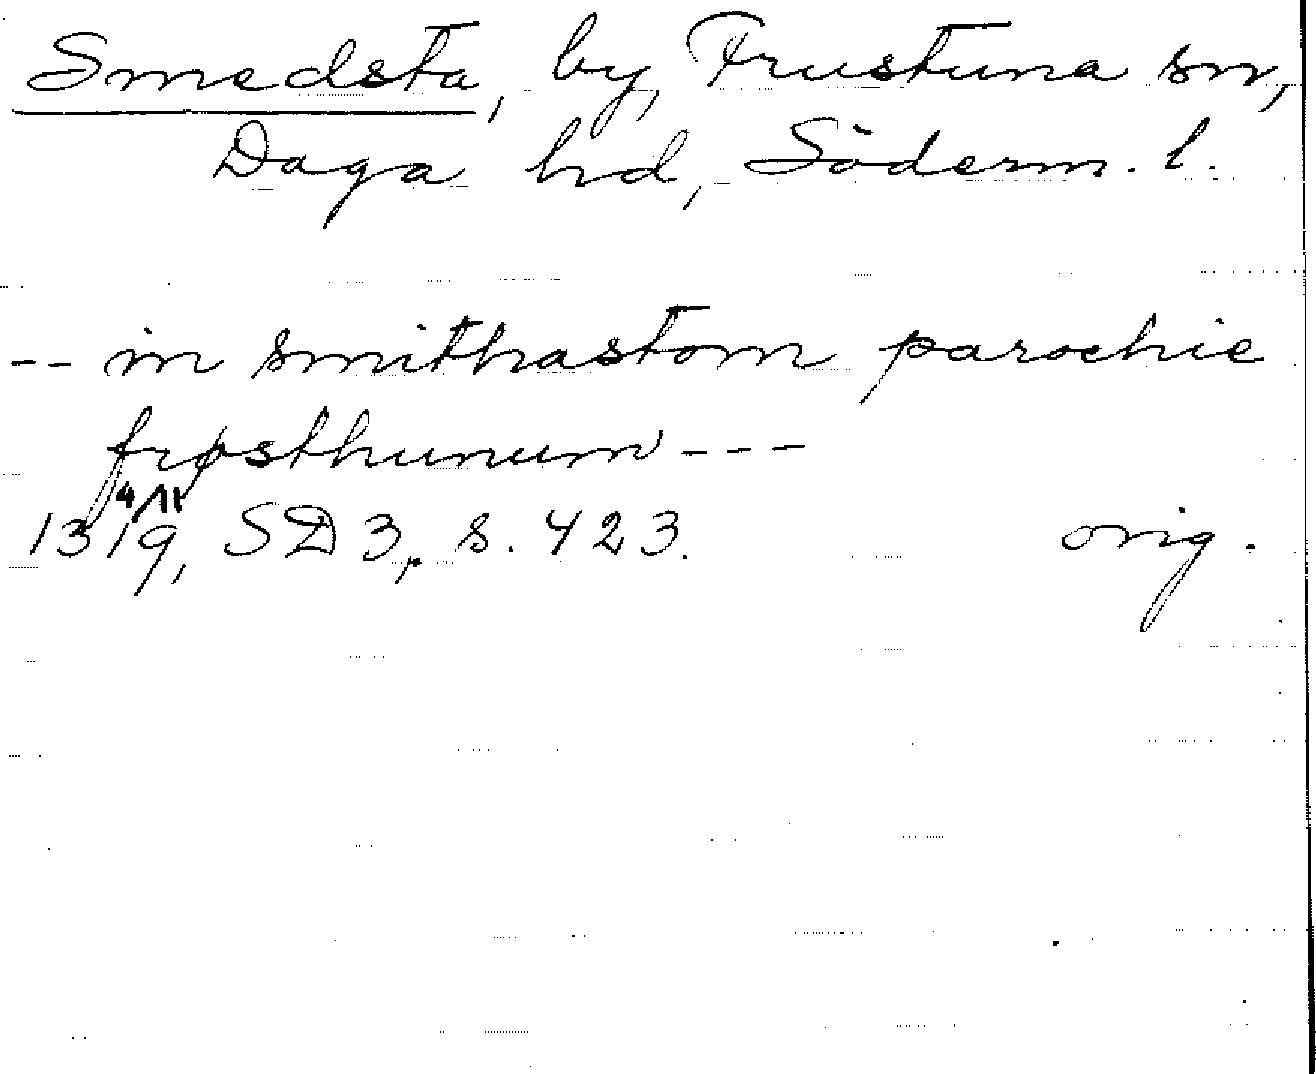 Smedsta, by, Frustuna sn,
Daga hd, Söderm. l.
-- in smithastom parochie
frøsthunum ---
4/11
1319, SD 3, s. 423. orig.